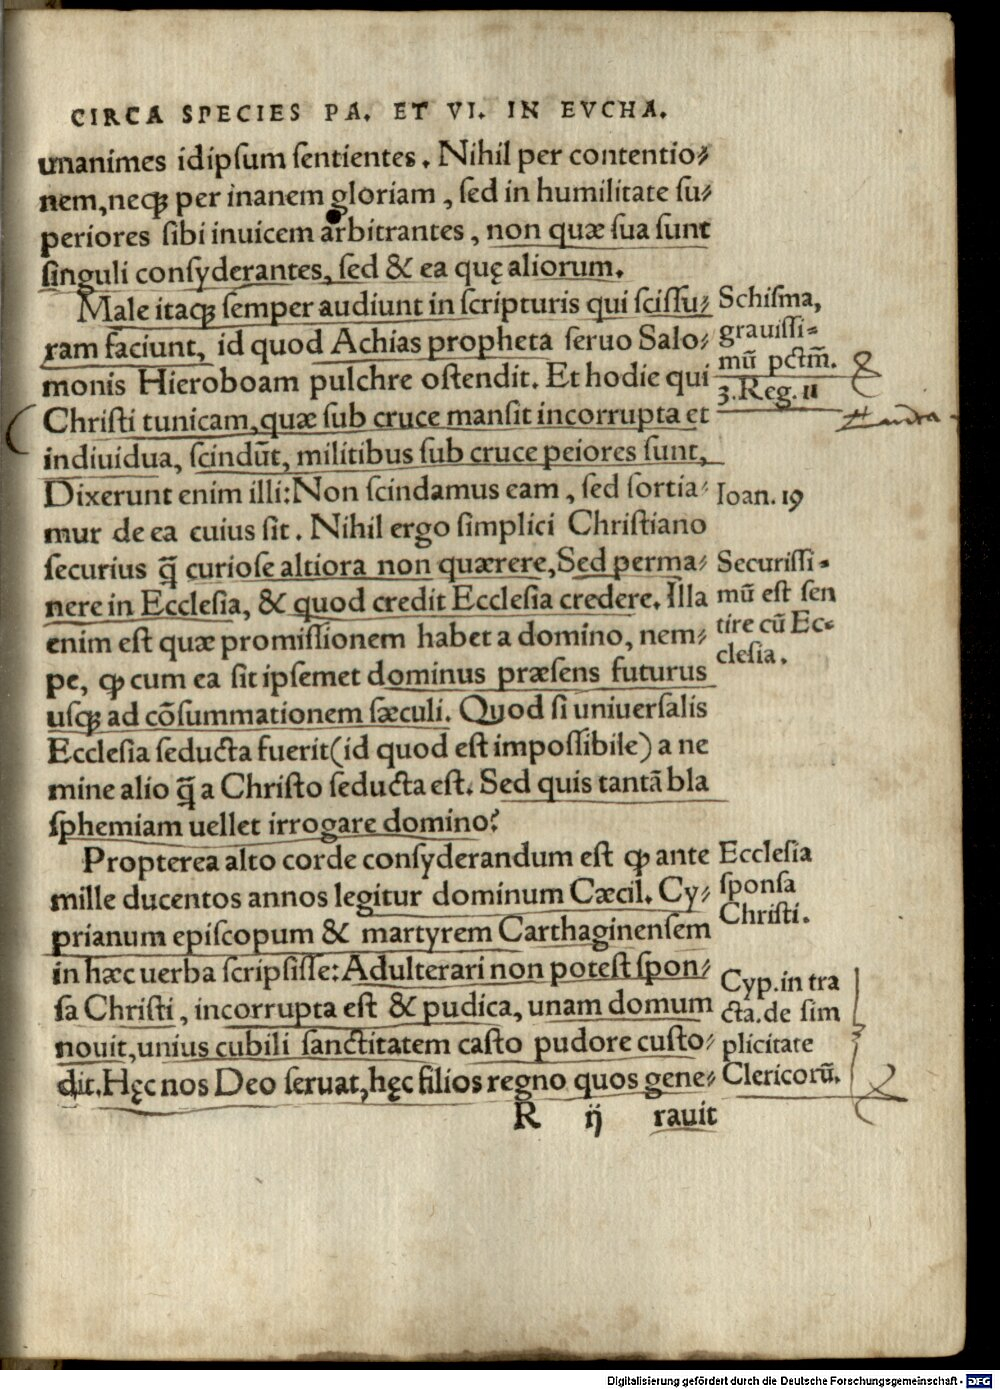 CIRCA SPECIES PA. ET VI. IN EVCHA.
unanimes idipſum ſentientes. Nihil per contentio⸗
nem, neqꝫ per inanem gloriam, ſed in humilitate ſu⸗
periores ſibi inuicem arbitrantes, non quæ ſua ſunt
ſinguli conſyderantes, ſed & ea quę aliorum.
Male itaqꝫ ſemper audiunt in ſcripturis qui ſciſſu⸗
ram faciunt, id quod Achias propheta ſeruo Salo⸗
monis Hieroboam pulchre oſtendit. Et hodie qui
Chriſti tunicam, quæ ſub cruce manſit incorrupta et
indiuidua, ſcindūt, militibus ſub cruce peiores ſunt,
Dixerunt enim illi: Non ſcindamus eam, ſed ſortia⸗
mur de ea cuius ſit. Nihil ergo ſimplici Chriſtiano
ſecurius q̄ curioſe altiora non quærere, Sed perma⸗
nere in Eccleſia, & quod credit Eccleſia credere. Illa
enim eſt quæ promiſſionem habet a domino, nem⸗
pe, ꝙ cum ea ſit ipſemet dominus præſens futurus
uſqꝫ ad cōſummationem ſæculi. Quod ſi uniuerſalis
Eccleſia ſeducta fuerit (id quod eſt impoſſibile) a ne
mine alio q̄ a Chriſto ſeducta eſt. Sed quis tantā bla
ſphemiam uellet irrogare domino?
Propterea alto corde conſyderandum eſt ꝙ ante
mille ducentos annos legitur dominum Cæcil. Cy⸗
prianum epiſcopum & martyrem Carthaginenſem
in hæc uerba ſcripſiſſe: Adulterari non poteſt ſpon⸗
ſa Chriſti, incorrupta eſt & pudica, unam domum
nouit, unius cubili ſanctitatem caſto pudore cuſto⸗
dit. Hęc nos Deo ſeruat, hęc filios regno quos gene⸗
R ij rauit
Schiſma,
grauiſſi⸗
mū pctm̄.
3. Reg. 11
Ioan. 19
Securiſſi⸗
mū eſt ſen
tire cū Ec⸗
cleſia.
Eccleſia
ſponſa
Chriſti.
Cyp. in tra
cta. de ſim
plicitate
Clericorū.
Digitalisierung gefördert durch die Deutsche Forschungsgemeinschaft - DFG